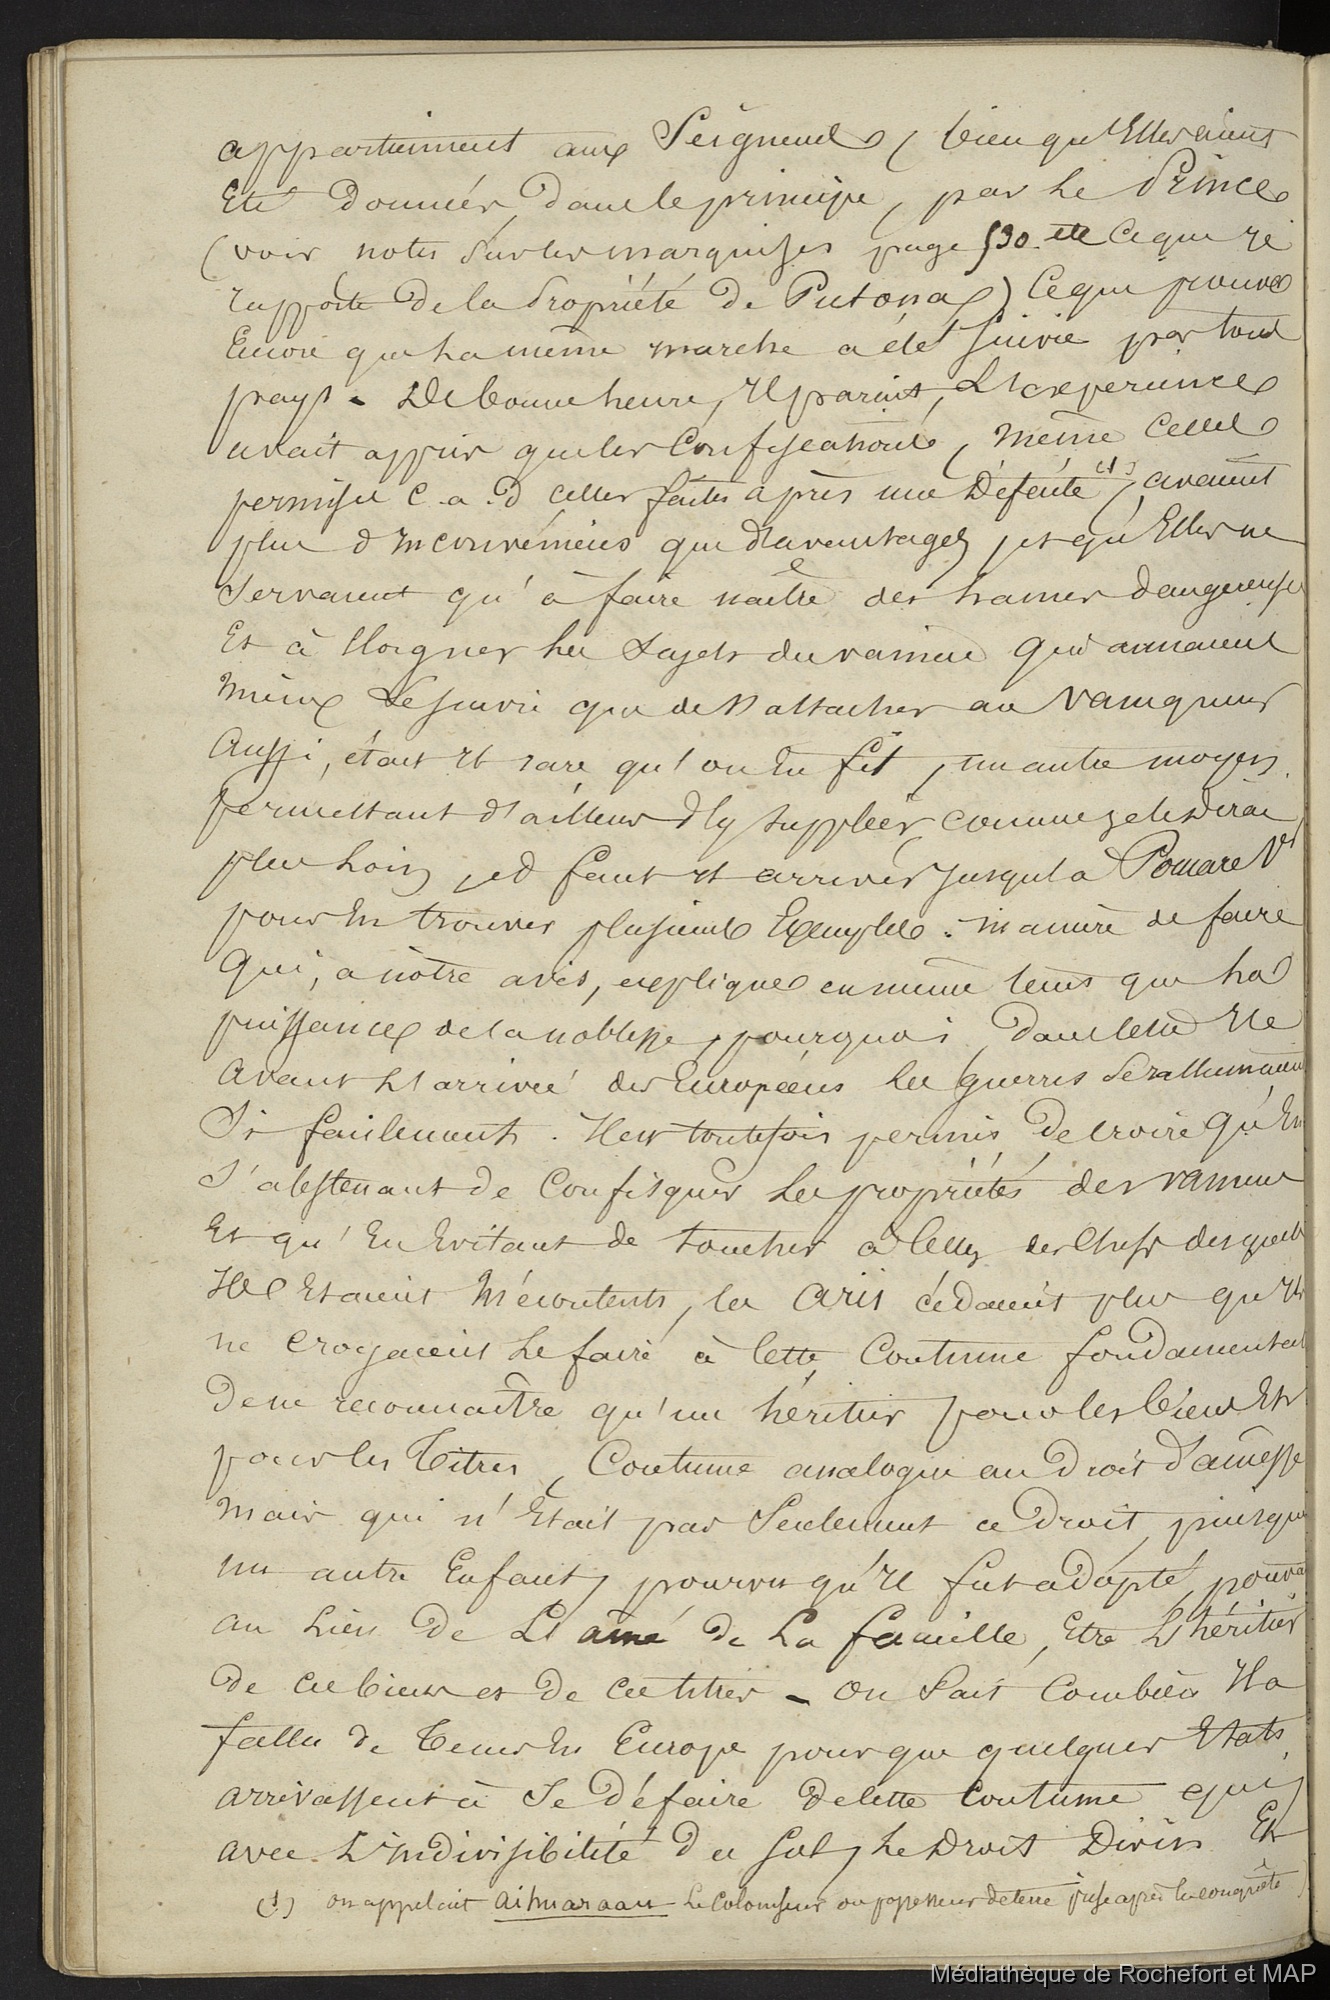 appartiennent aux Seigneurs, (bien qu'Elles aient
Eté données, dans le principe, par le Prince
(voir notes sur les marquises page 530. ce qui se
rapporte de la Propriété de Putona) Ce qui prouve
Encore que la même marche a été suivie par tout
pays - De bonne heure, Il parait, L'expérience
avait appris que les Confiscations, même Celles
permises c. a. d celles faites après une Défaite (1), avaient
plus d'Inconvéniens que d'avantages, et qu'Elles ne
Servaient qu'à faire naitre des haines dangereuses
Et à Eloigner les Sujets du vaincu qui aimaient
mieux Le suivre que de s'attacher au vainqueur
Aussi, était Il rare qu'on En fît, un autre moyen
permettant d'ailleurs d'y suppléer, comme je le dirai
plus loin, et faut il arriver jusqu'à Pomare Vi
pour En trouver plusieurs Exemples. manière de faire
Qui, à notre avis, explique en même tems que la
puissance de la noblesse, pourquoi, Dans cette Ile
Avant L'arrivée des Européens les guerres Se rallumaient
Si facilement. Il est toutefois permis De croire qu'En
S'abstenant de Confisquer Les propriétés des vaincus
Et qu'En Evitant de toucher à Celles des Chefs desquels
Ils Etaient Mécontents, les Ariis cédaient plus qu'Ils
ne croyaient Le faire à Cette Coutume fondamentale
De ne reconnaître qu'un héritier pour les biens Et
pour les Titres, Coutume analogue au Droit D'ainesse
Mais qui n'Etait pas Seulement ce Droit, puisque
un autre Enfant, pourvu qu'Il fut adopté, pouvait
au Lieu de L'ainé de La famille, Etre L'héritier
De ces biens et De ces titres - On Sait Combien Il a
fallu de Tems En Europe pour que quelques Etats
arrivassent à Se Défaire De cette Coutume qui,
avec L'Indivisibilité Du Sol, Le Droit Divin Et
(1) on appelait aihuaraau - Le Colonseur ou possesseur de terre prise après la conquête
Médiathèque de Rochefort et MAP